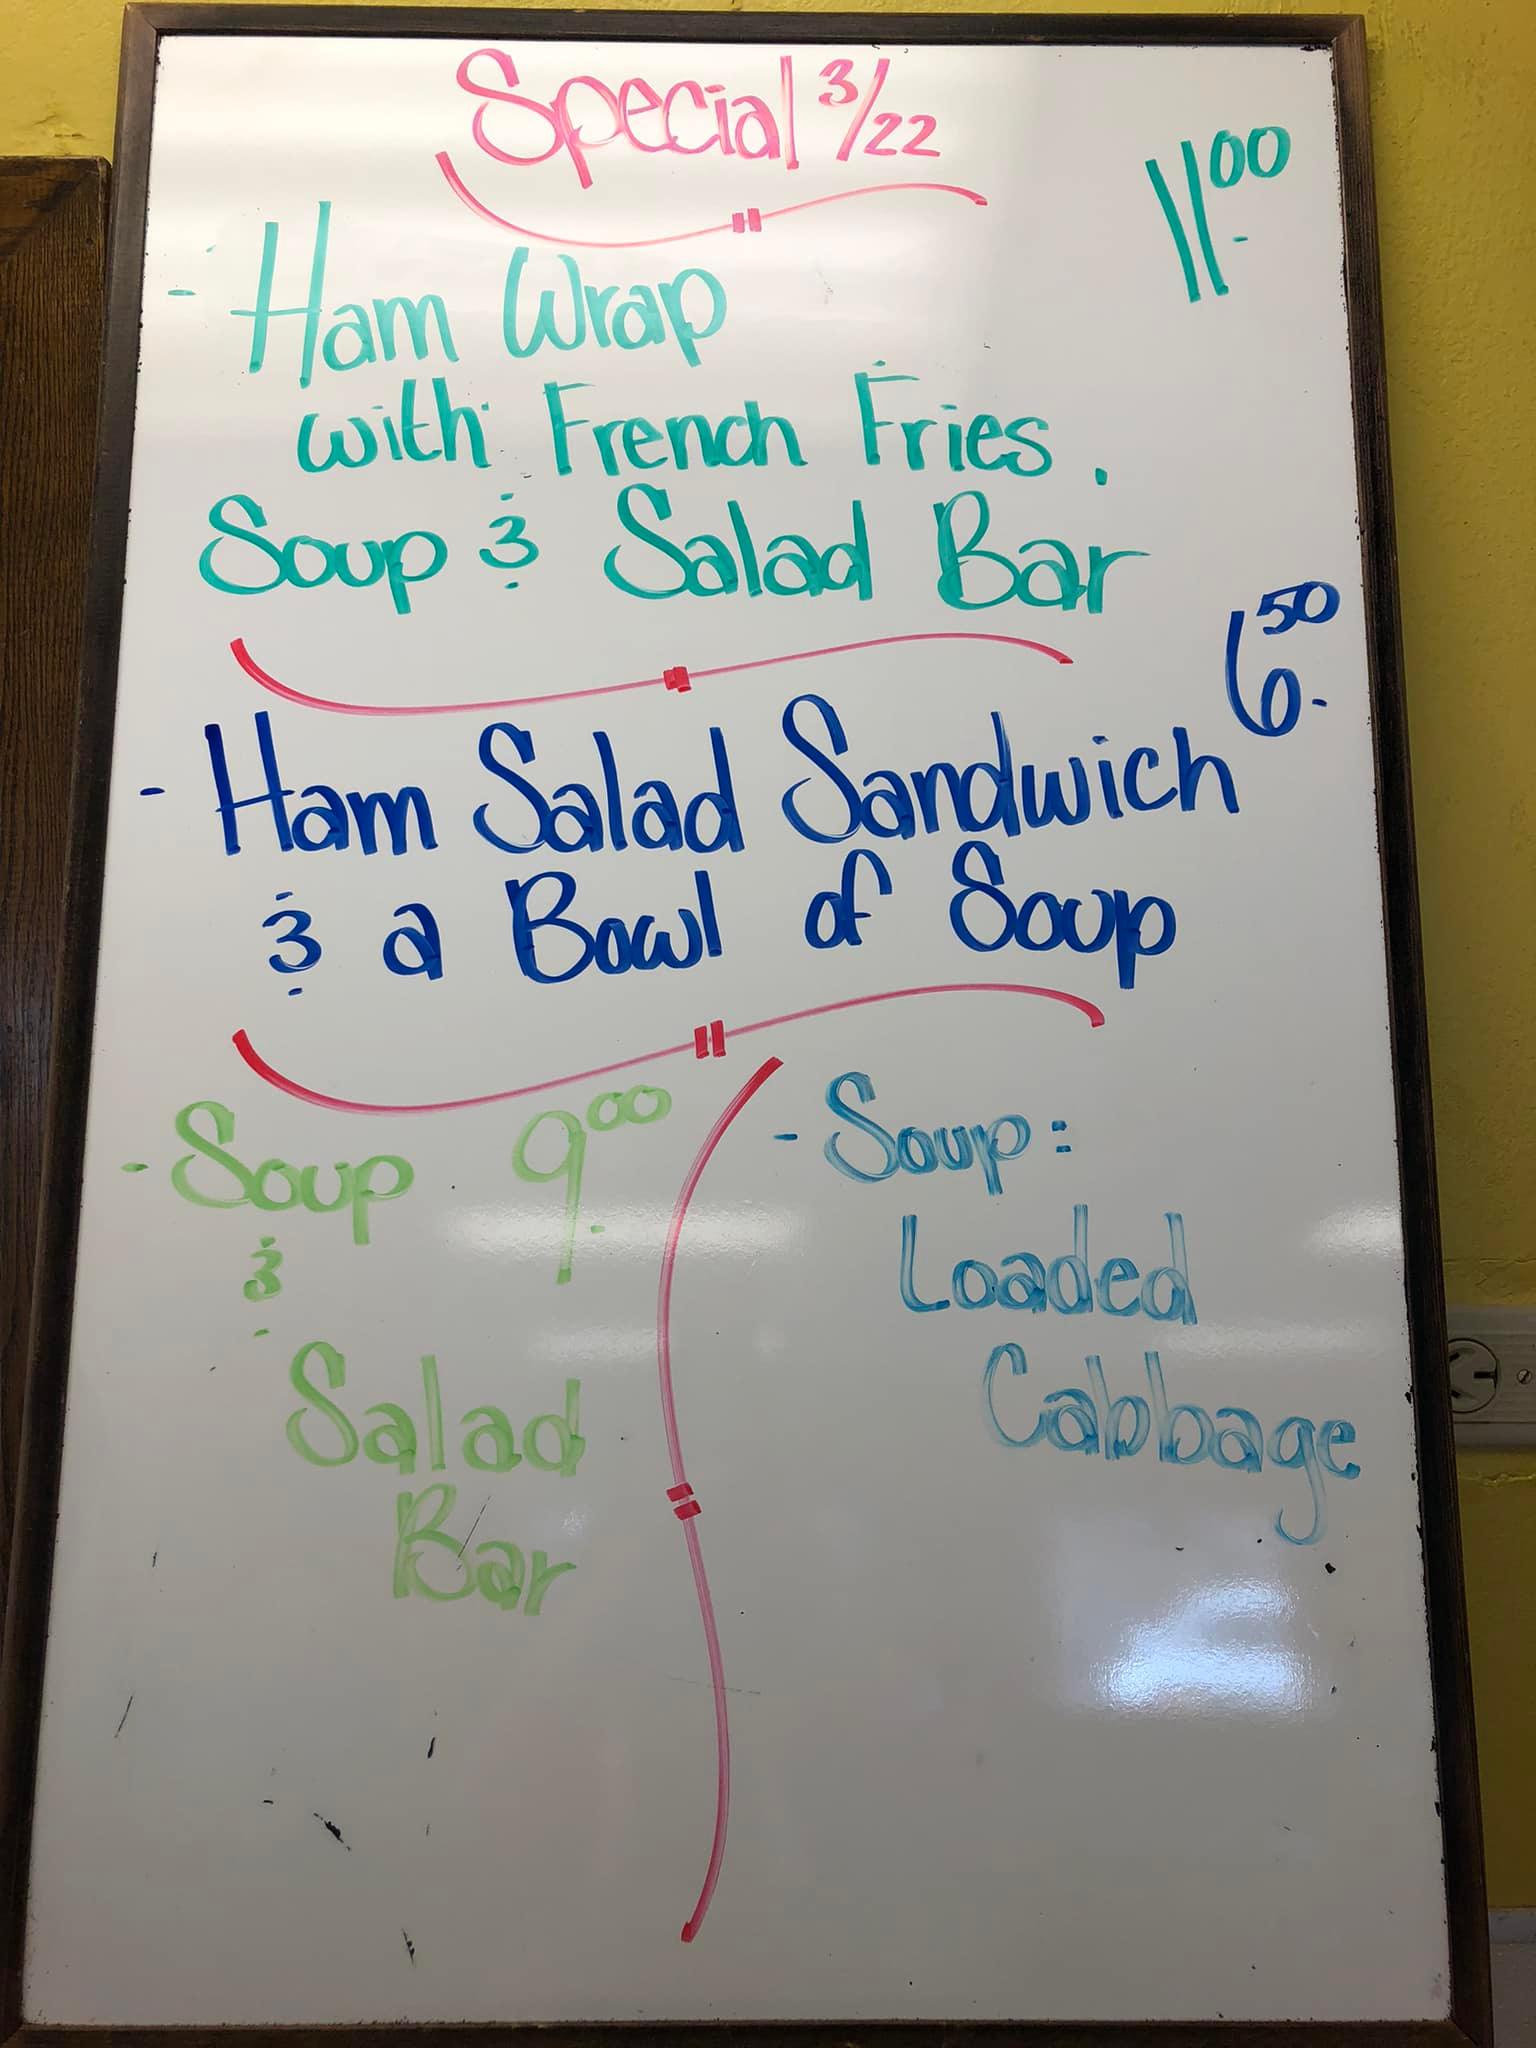 Special 3/22
11.00
- Ham Wrap
with French Fries.
Soup & Salad Bar
6.50
- Ham Salad Sandwich
& a Bowl of Soup
- Soup 9.00
&
Salad
Bar
- Soup:
Loaded
Cabbage